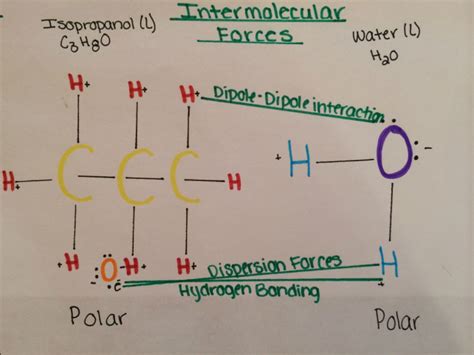 Intermolecular
Forces
Isopropanol (L)
C3H8O
Water (L)
H2O
H+ H+ H+ Dipole-Dipole interaction
H+ C C C H
+ H O -
+H O-H+ H+ Dispersion Forces H
ē Hydrogen Bonding +
Polar Polar